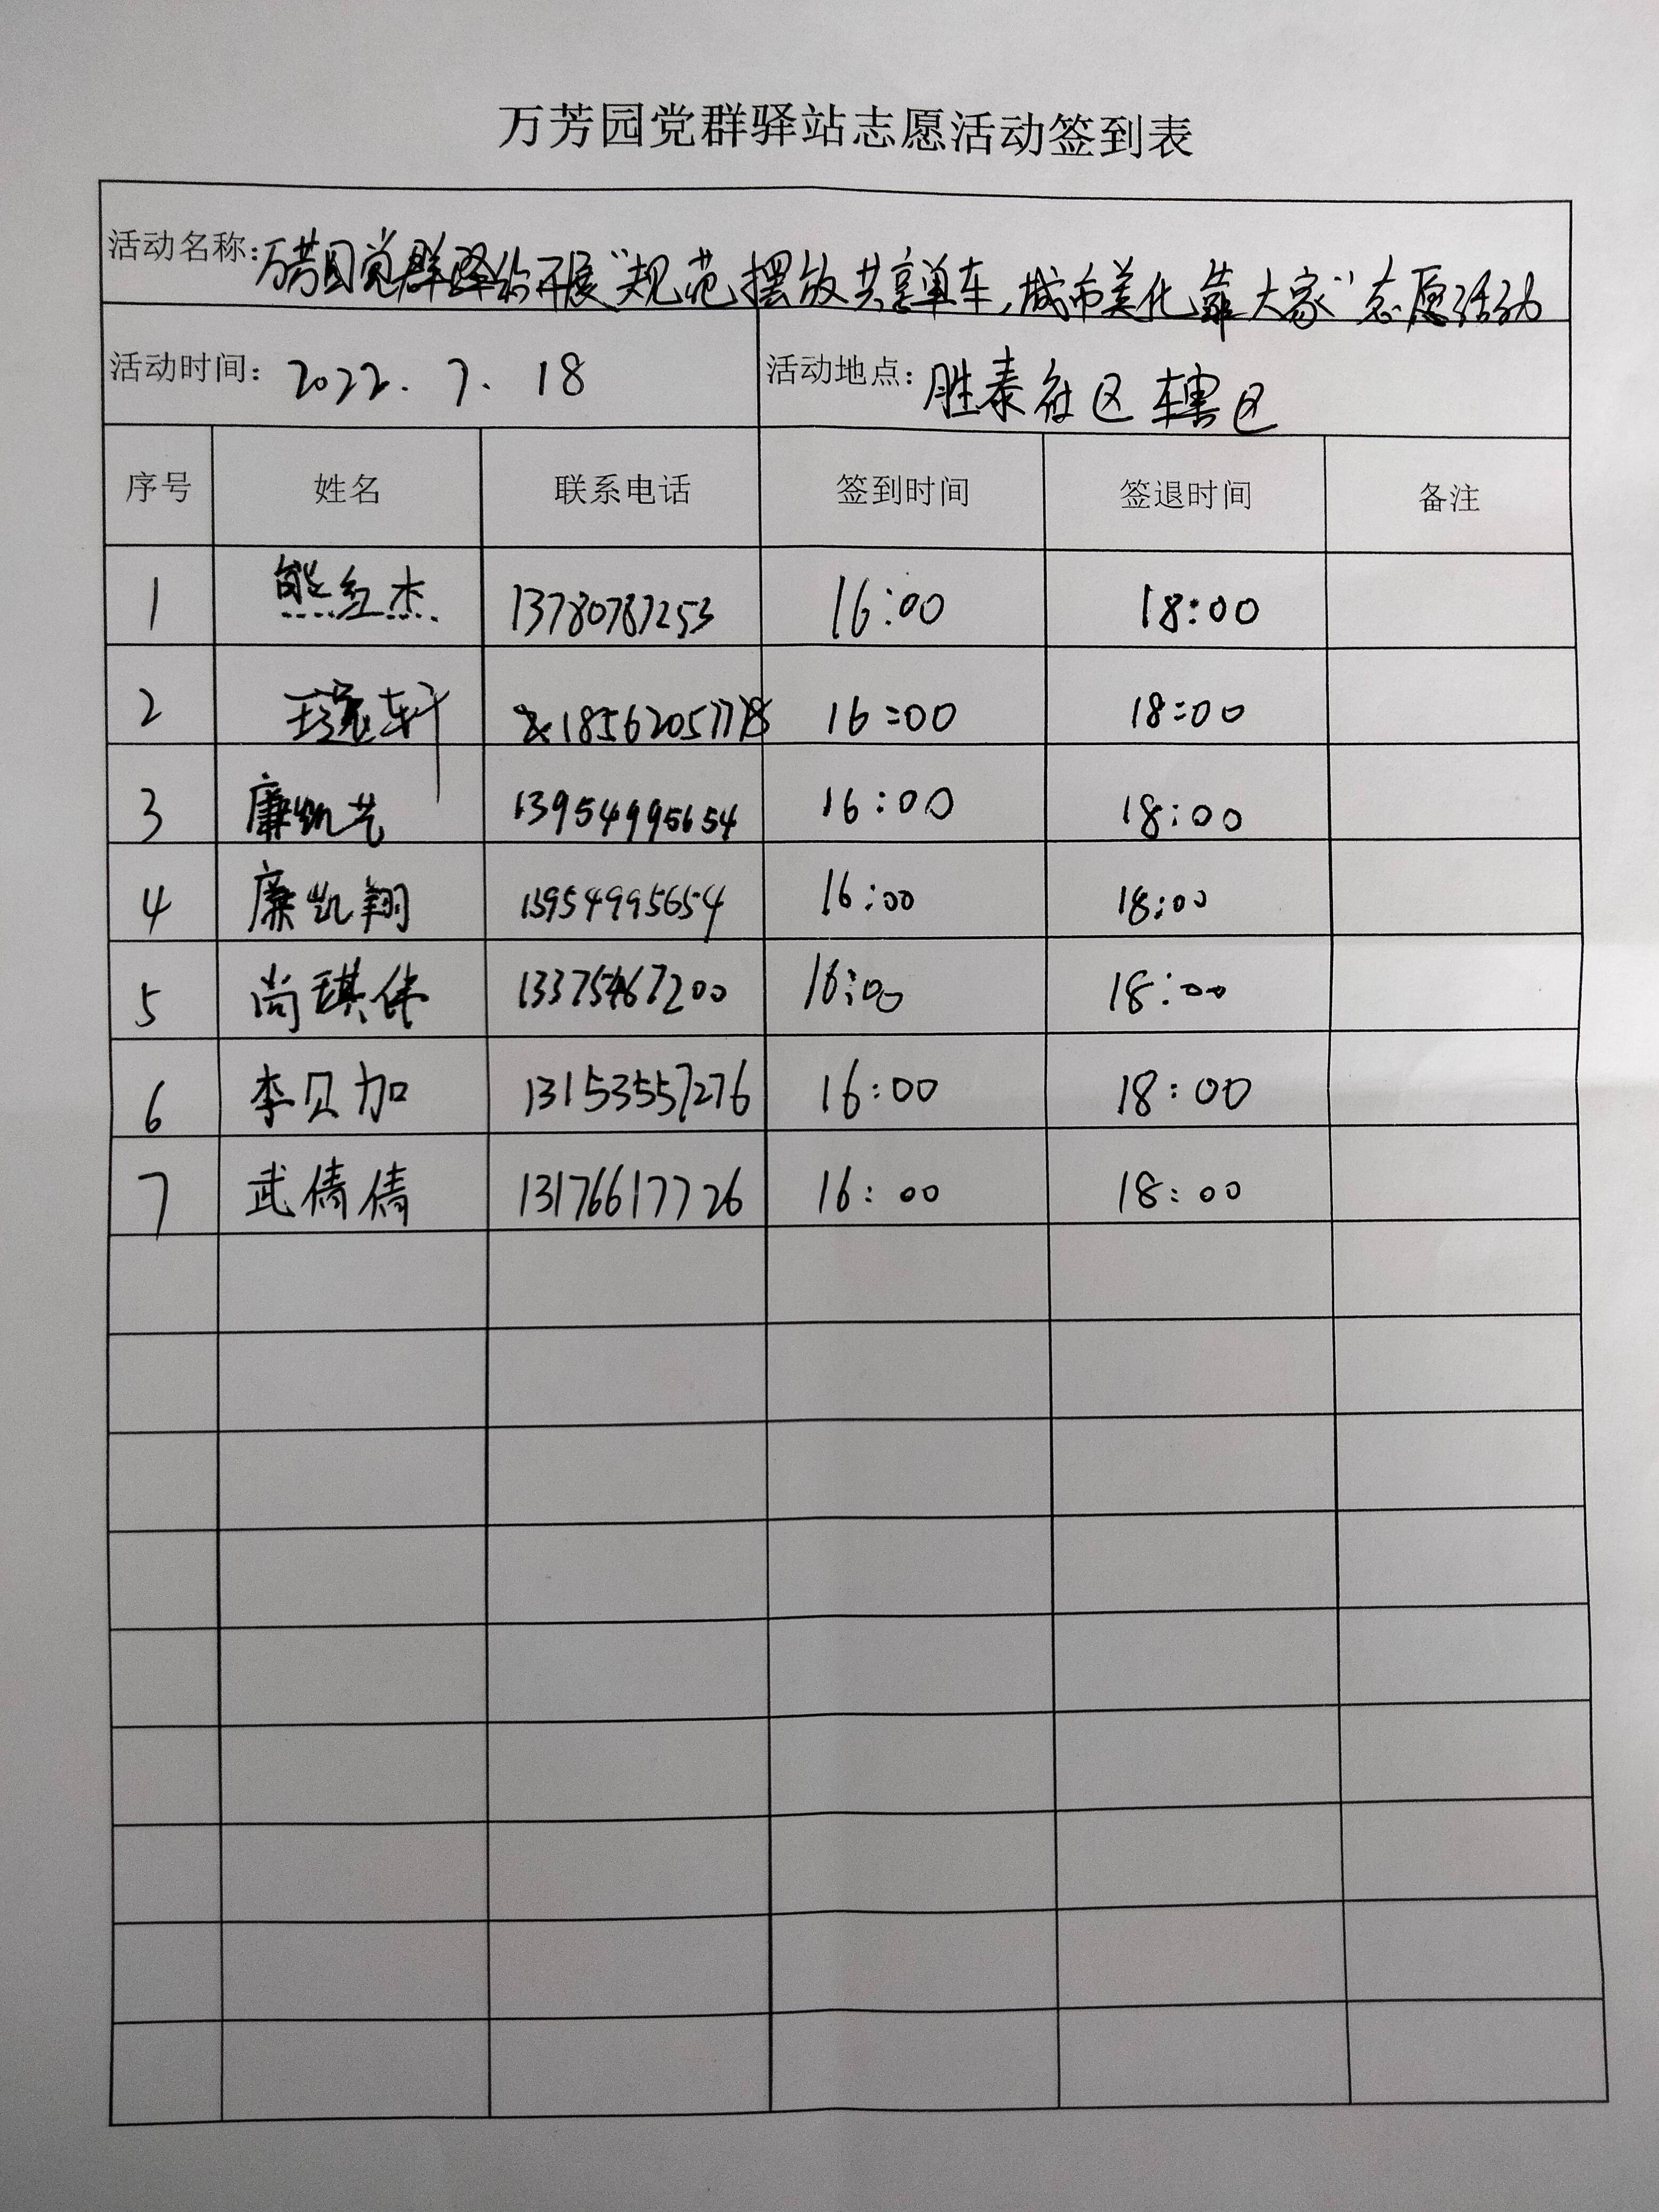 万芳园党群驿站志愿活动签到表
活动名称:万芳园党群驿站开展“规范摆放共享单车,城市美化靠大家”志愿活动
活动时间: 2022.7.18 活动地点: 胜泰社区辖区
序号 姓名 联系电话 签到时间 签退时间 备注
1 熊红杰 13780787253 16:00 18:00
2 王 轩 18562057778 16:00 18:00
3 廉凯艺 13954995654 16:00 18:00
4 廉凯翔 13954995654 16:00 18:00
5 尚琪伟 16:00 18:00
6 李贝加 13153557276 16:00 18:00
7 武倩倩 13176617726 16:00 18:00